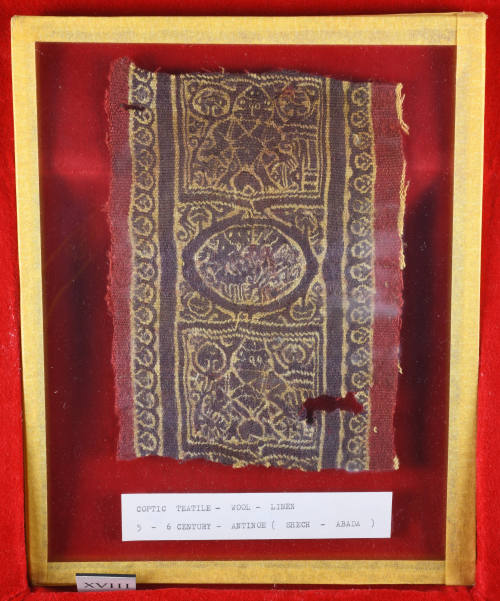 COPTIC TEATILE - WOOL - LINEN
5 - 6 CENTURY - ANTINOE ( SHECH - ABADA )
XVIII